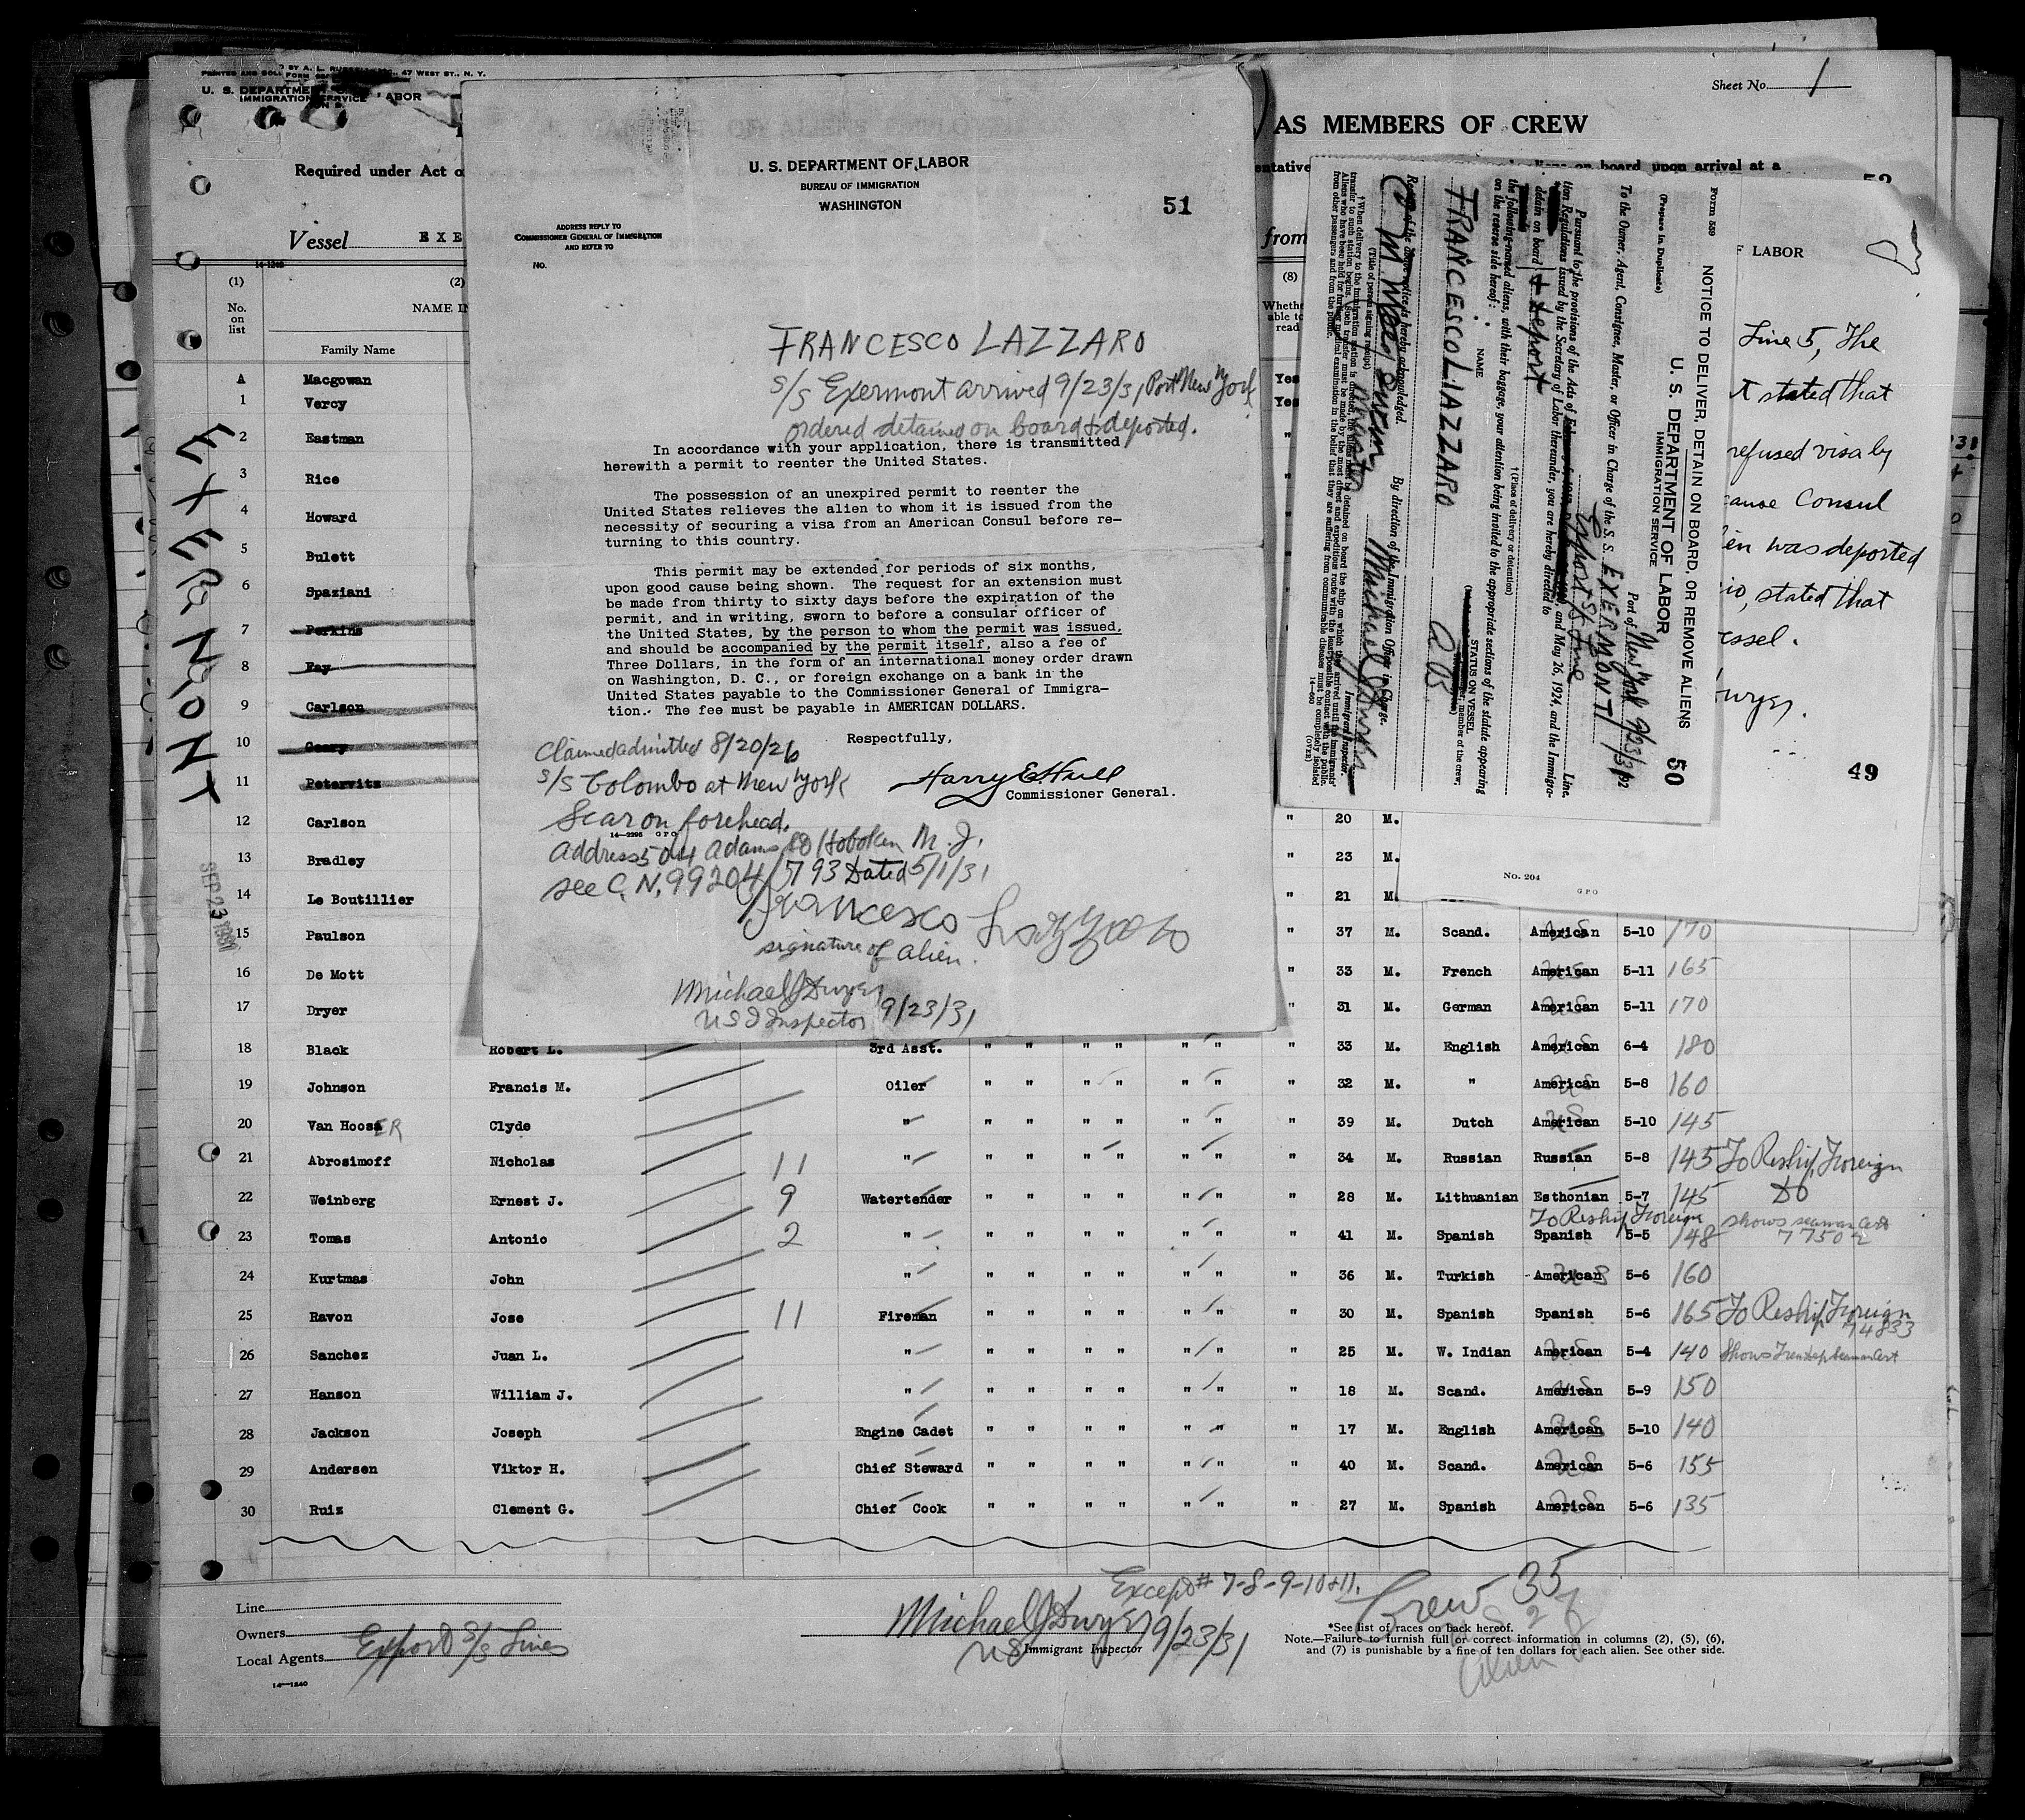 PRINTED AND SOLD BY A. L. RUSSELL 47 WEST ST., N. Y.
U. S. DEPARTMENT LABOR
IMMIGRATION SERVICE
Sheet No. 1
AS MEMBERS OF CREW
Required under Act
board upon arrival at a
Vessel EXE
from
14-1240
(1) (2) (8)
No. on list
NAME IN
Family Name
Whether able to read
EXERMONT
SEP 23 1931
A Macgowan Yes
1 Vercy Yes
2 Eastman "
3 Rice
4 Howard
5 Bulett
6 Spaziani
7 Perkins
8 Fay
9 Carlson
10 Geary
11 Petervits
12 Carlson " 20 M.
13 Bradley " 23 M.
14 Le Boutillier " 21 M.
15 Paulson " 37 M. Scand. American 5-10 170
16 De Mott " 33 M. French American 5-11 165
17 Dryer " 31 M. German American 5-11 170
18 Black Robert L. 3rd Asst. " " " " " " " 33 M. English American 6-4 180
19 Johnson Francis M. Oiler " " " " " " " 32 M. " American 5-8 160
20 Van Hooser Clyde " " " " " " " " 39 M. Dutch American 5-10 145
21 Abrosimoff Nicholas 11 " " " " " " " " 34 M. Russian Russian 5-8 145 To Reship Foreign
22 Weinberg Ernest J. 9 Watertender " " " " " " " 28 M. Lithuanian Esthonian 5-7 145 Do
To Reship Foreign shows seaman Cert
23 Tomas Antonio 2 " " " " " " " " 41 M. Spanish Spanish 5-5 148
24 Kurtmas John " " " " " " " " 36 M. Turkish American U S 5-6 160
25 Ravon Jose 11 Fireman " " " " " " " 30 M. Spanish Spanish 5-6 165 To Reship Foreign
74833
26 Sanchez Juan L. " " " " " " " " 25 M. W. Indian American 5-4 140
27 Hanson William J. " " " " " " " " 18 M. Scand. American 5-9 150
28 Jackson Joseph Engine Cadet " " " " " " " 17 M. English American 5-10 140
29 Andersen Viktor H. Chief Steward " " " " " " " 40 M. Scand. American 5-6 155
30 Ruiz Clement G. Chief Cook " " " " " " " 27 M. Spanish American 5-6 135
Except # 7-8-9-10+11.
Crew 35
Alien
Line
Owners
Local Agents Export S/S Lines
14-1240
Michael J Dwyer 9/23/31
US Immigrant Inspector
*See list of races on back hereof.
Note.—Failure to furnish full or correct information in columns (2), (5), (6),
and (7) is punishable by a fine of ten dollars for each alien. See other side.
U. S. DEPARTMENT OF LABOR
BUREAU OF IMMIGRATION
WASHINGTON
51
ADDRESS REPLY TO
COMMISSIONER GENERAL OF IMMIGRATION
AND REFER TO
NO.
FRANCESCO LAZZARO
s/s Exermont arrived 9/23/31, Port New York
ordered detained on board & deported.
In accordance with your application, there is transmitted
herewith a permit to reenter the United States.
The possession of an unexpired permit to reenter the
United States relieves the alien to whom it is issued from the
necessity of securing a visa from an American Consul before re-
turning to this country.
This permit may be extended for periods of six months,
upon good cause being shown. The request for an extension must
be made from thirty to sixty days before the expiration of the
permit, and in writing, sworn to before a consular officer of
the United States, by the person to whom the permit was issued,
and should be accompanied by the permit itself, also a fee of
Three Dollars, in the form of an international money order drawn
on Washington, D. C., or foreign exchange on a bank in the
United States payable to the Commissioner General of Immigra-
tion. The fee must be payable in AMERICAN DOLLARS.
Respectfully,
Harry E. Hull
Commissioner General.
Claimed admitted 8/20/26
s/s Colombo at New York
Scar on forehead.
14-2295 GPO
Address 504 Adams St Hoboken N. J.
see C. N. 99204/5793 Dated 5/1/31
Francesco Lazzaro
signature of alien.
Michael J Dwyer 9/23/31
U S I Inspector
Form 559
(Prepare in Duplicate)
NOTICE TO DELIVER, DETAIN ON BOARD, OR REMOVE ALIENS
U. S. DEPARTMENT OF LABOR
IMMIGRATION SERVICE
50
Port of New York 9/23/31, 192
To the Owner, Agent, Consignee, Master, or Officer in Charge of the S. S. EXERMONT
Export S/S Line Line.
Pursuant to the provisions of the Acts of and May 26, 1924, and the Immigra-
tion Regulations issued by the Secretary of Labor thereunder, you are hereby directed to
detain on board & deport
† (Place of delivery or detention)
the following-named aliens, with their baggage, your attention being invited to the appropriate sections of the statute appearing
on the reverse side hereof:
NAME
STATUS ON VESSEL
FRANCESCO LAZZARO
By direction of the Immigration Officer in Charge.
Michael J Dwyer
Immigrant Inspector.
Receipt of the above notice is hereby acknowledged.
Master
(Title of person signing receipt)
14-560
(OVER)
LABOR
Line 5, The
stated that
refused visa by
cause Consul
was deported
stated that
vessel.
Dwyer.
49
No. 204
GPO